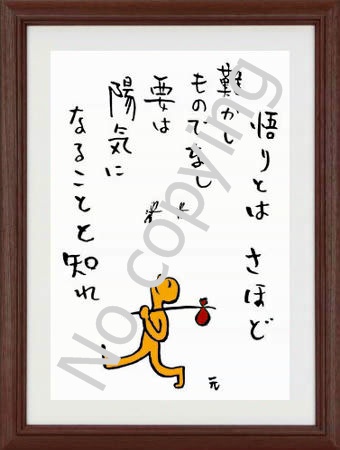 悟りとは さほど
難かし
ものでなし
要は
陽気に
なることと知れ
元
No copying